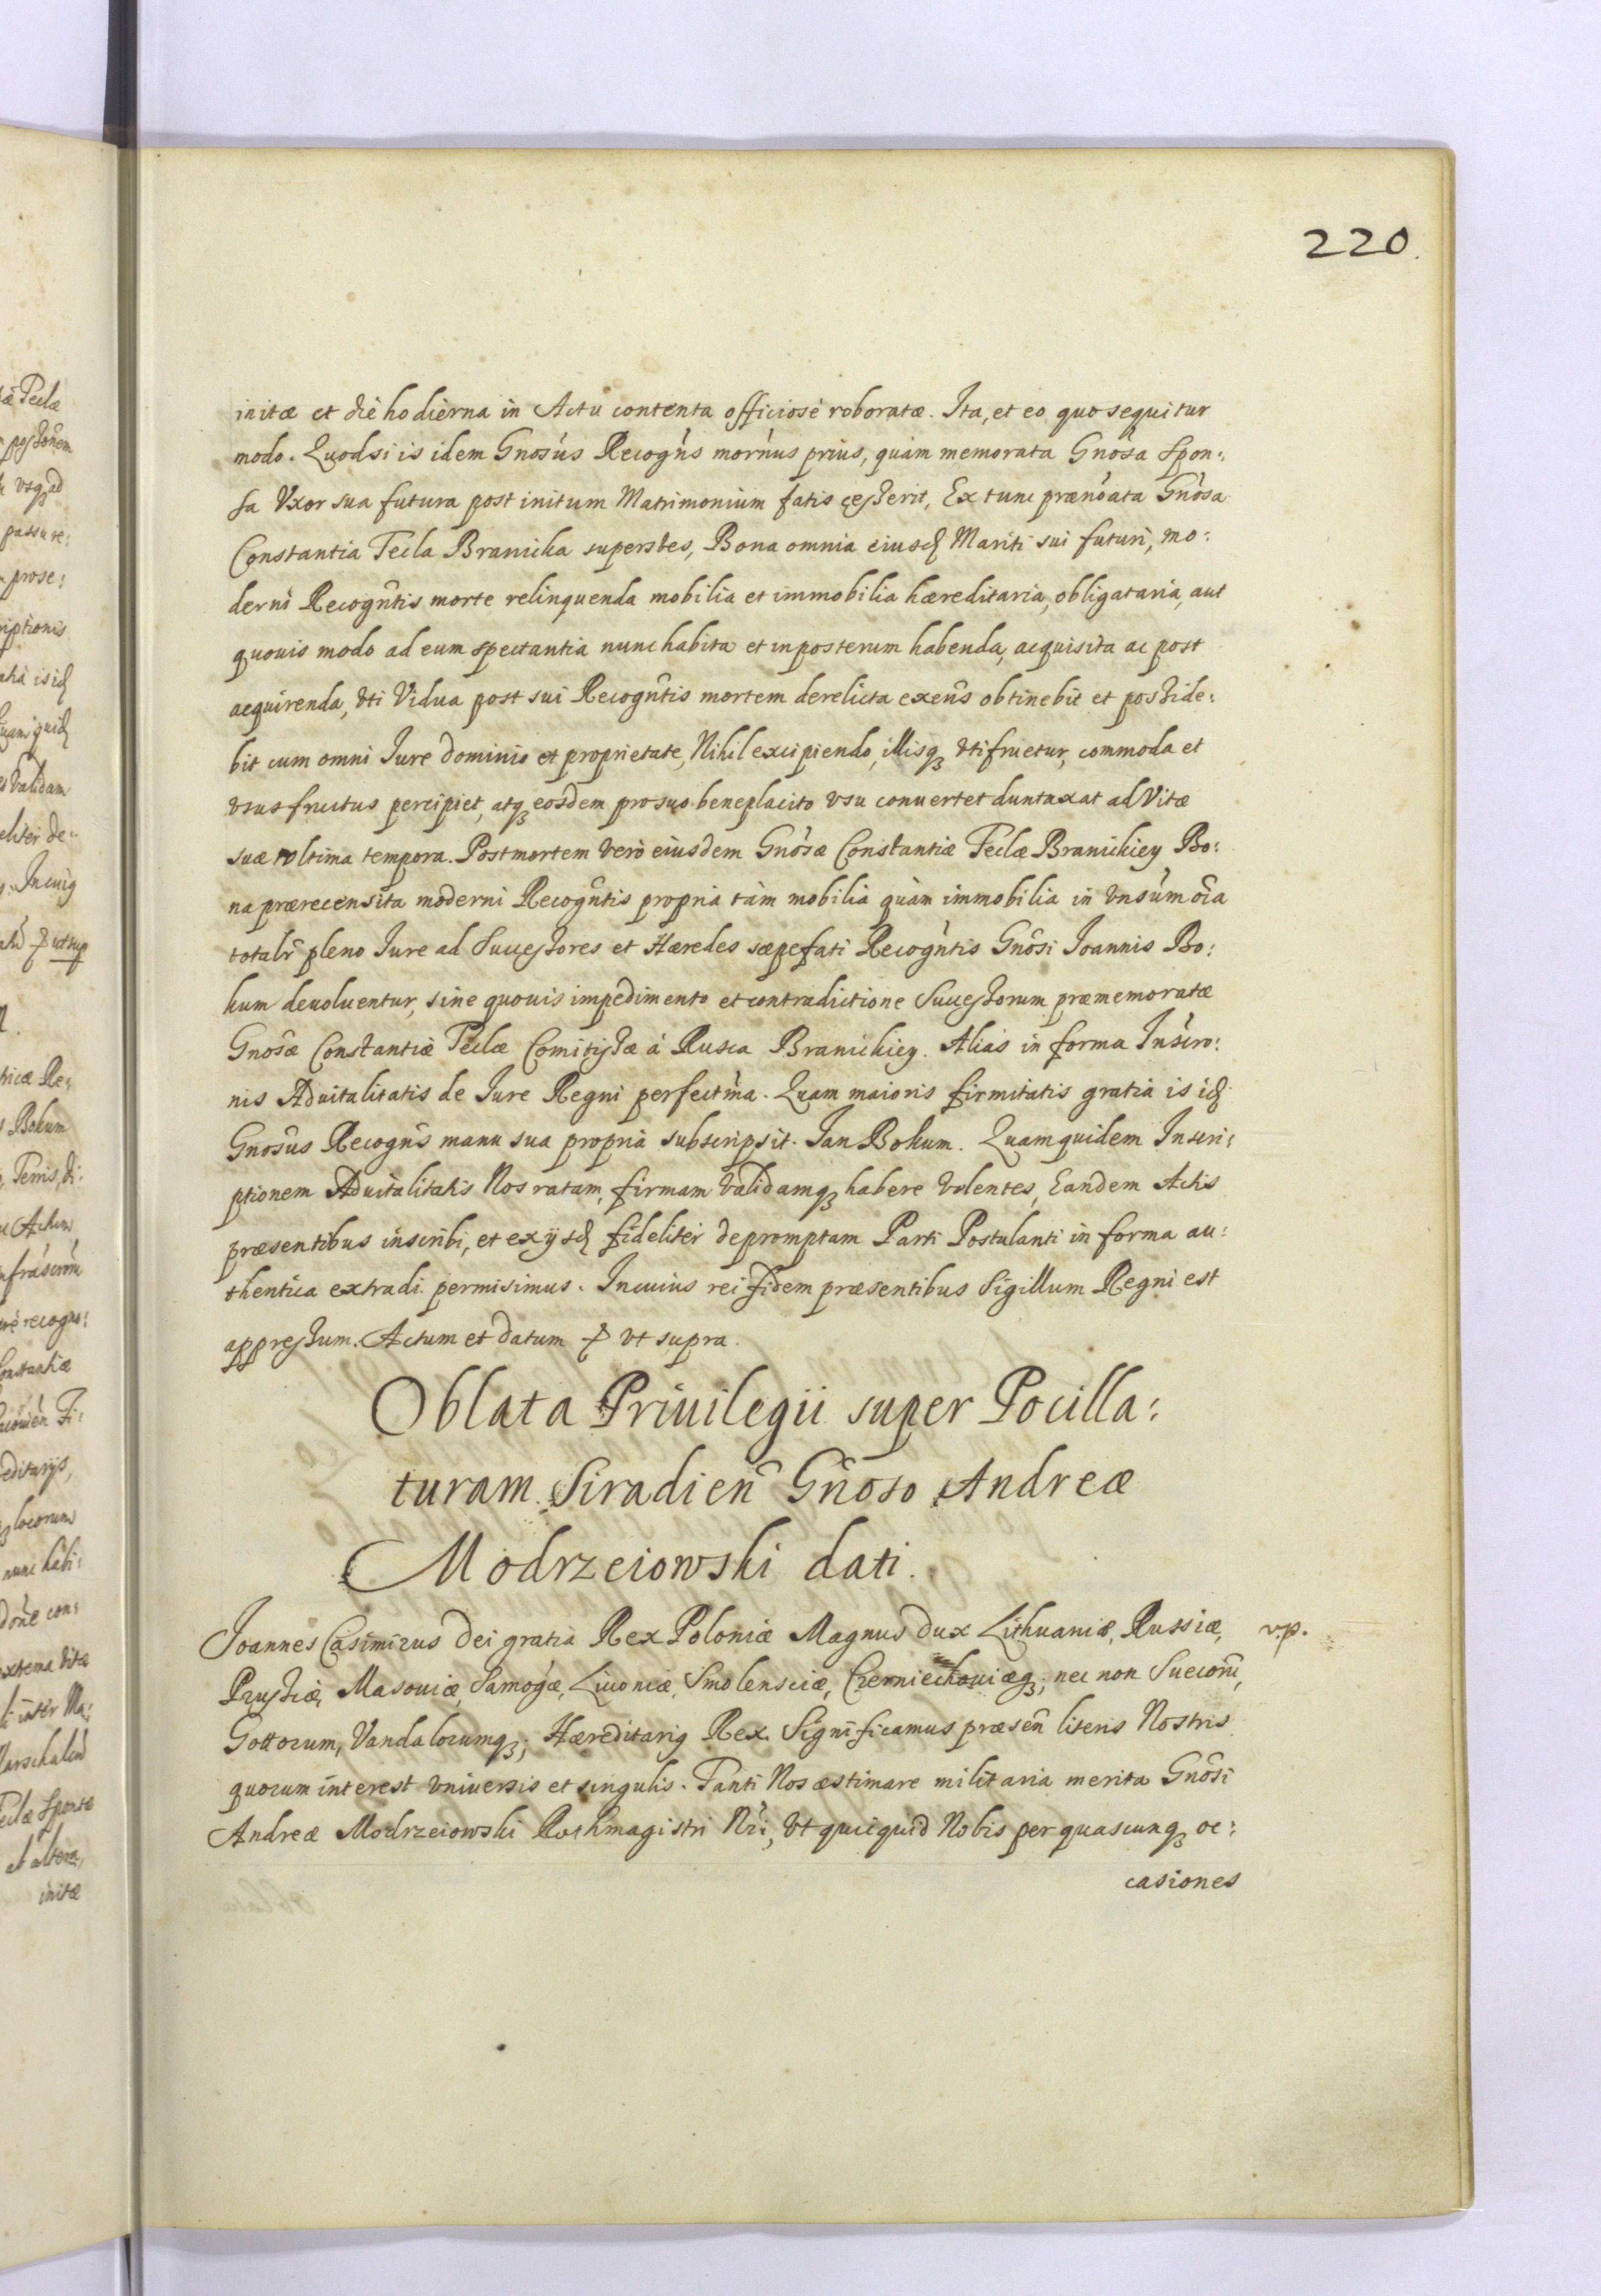 220.
initæ et die hodierna in Actu contenta officiose roboratæ. Ita, et eo quo sequitur
modo. Quodsi is idem Gnosus Recogns mornus prius, quàm memorata Gnosa Spon:
sa Vxor sua futura post initum Matrimonium fatis cesserit, Ex tunc prænoata Gnosa
Constantia Tecla Branicka superstes, Bona omnia eiusd Mariti sui futuri, mo:
derni Recogntis morte relinquenda mobilia et immobilia hæreditaria, obligataria, aut
quouis modo ad eum spectantia nunc habita et inposterum habenda, acquisita ac post
acquirenda, vti Vidua post sui Recogntis mortem derelicta exens obtinebit et posside:
bit cum omni Iure dominio et proprietate, Nihil excipiendo, illisq3 vtifruetur, commoda et
vsusfructus percipiet, atq3 eosdem pro suo beneplacito vsu conuertet duntaxat ad Vitæ
suæ vltima tempora. Post mortem verò eiusdem Gnosæ Constantiæ Teclæ Branickiey Bo:
na prærecensita moderni Recogntis propria tàm mobilia quàm immobilia in vnsum oia
totalr pleno Iure ad Successores et Hæredes sæpefati Recogntis Gnosi Ioannis Bo:
kum deuoluentur, sine quouis impedimento et contradictione Successorum præmemoratæ
Gnosæ Constantiæ Teclæ Comitissæ á Rusca Branickiey. Alias in forma Inscro:
nis Aduitalitatis de Iure Regni perfectma. Quam maioris firmitatis gratia is id
Gnosus Recogns manu sua propria subscripsit. Jan Bokum. Quamquidem Inscri:
ptionem Aduitalitatis Nos ratam, firmam validamq3 habere volentes, Eandem Actis
præsentibus inscribi, et ex ijsd fideliter depromptam Parti Postulanti in forma au:
thentica extradi permisimus. In cuius rei fidem præsentibus Sigillum Regni est
appressum. Actum et datum & vt supra.
Oblata Priuilegii super Pocilla:
turam Siradien Gnoso Andreæ
Modrzeiowski dati.
Joannes Casimirus Dei gratia Rex Poloniæ Magnus Dux Lithuaniæ, Russiæ, v.p.
Prussiæ, Masouiæ, Samogæ, Liuoniæ, Smolensciæ, Czerniechouiæq3; nec non Suecorū,
Gottorum, Vandalorumq3; Hæreditarius Rex. Significamus præsen literis Nostris
quorum interest vniuersis et singulis. Tanti Nos æstimare militaria merita Gnosi
Andreæ Modrzeiowski Rothmagistri Nri, Vt quicquid Nobis per quascunq3 oc:
casiones